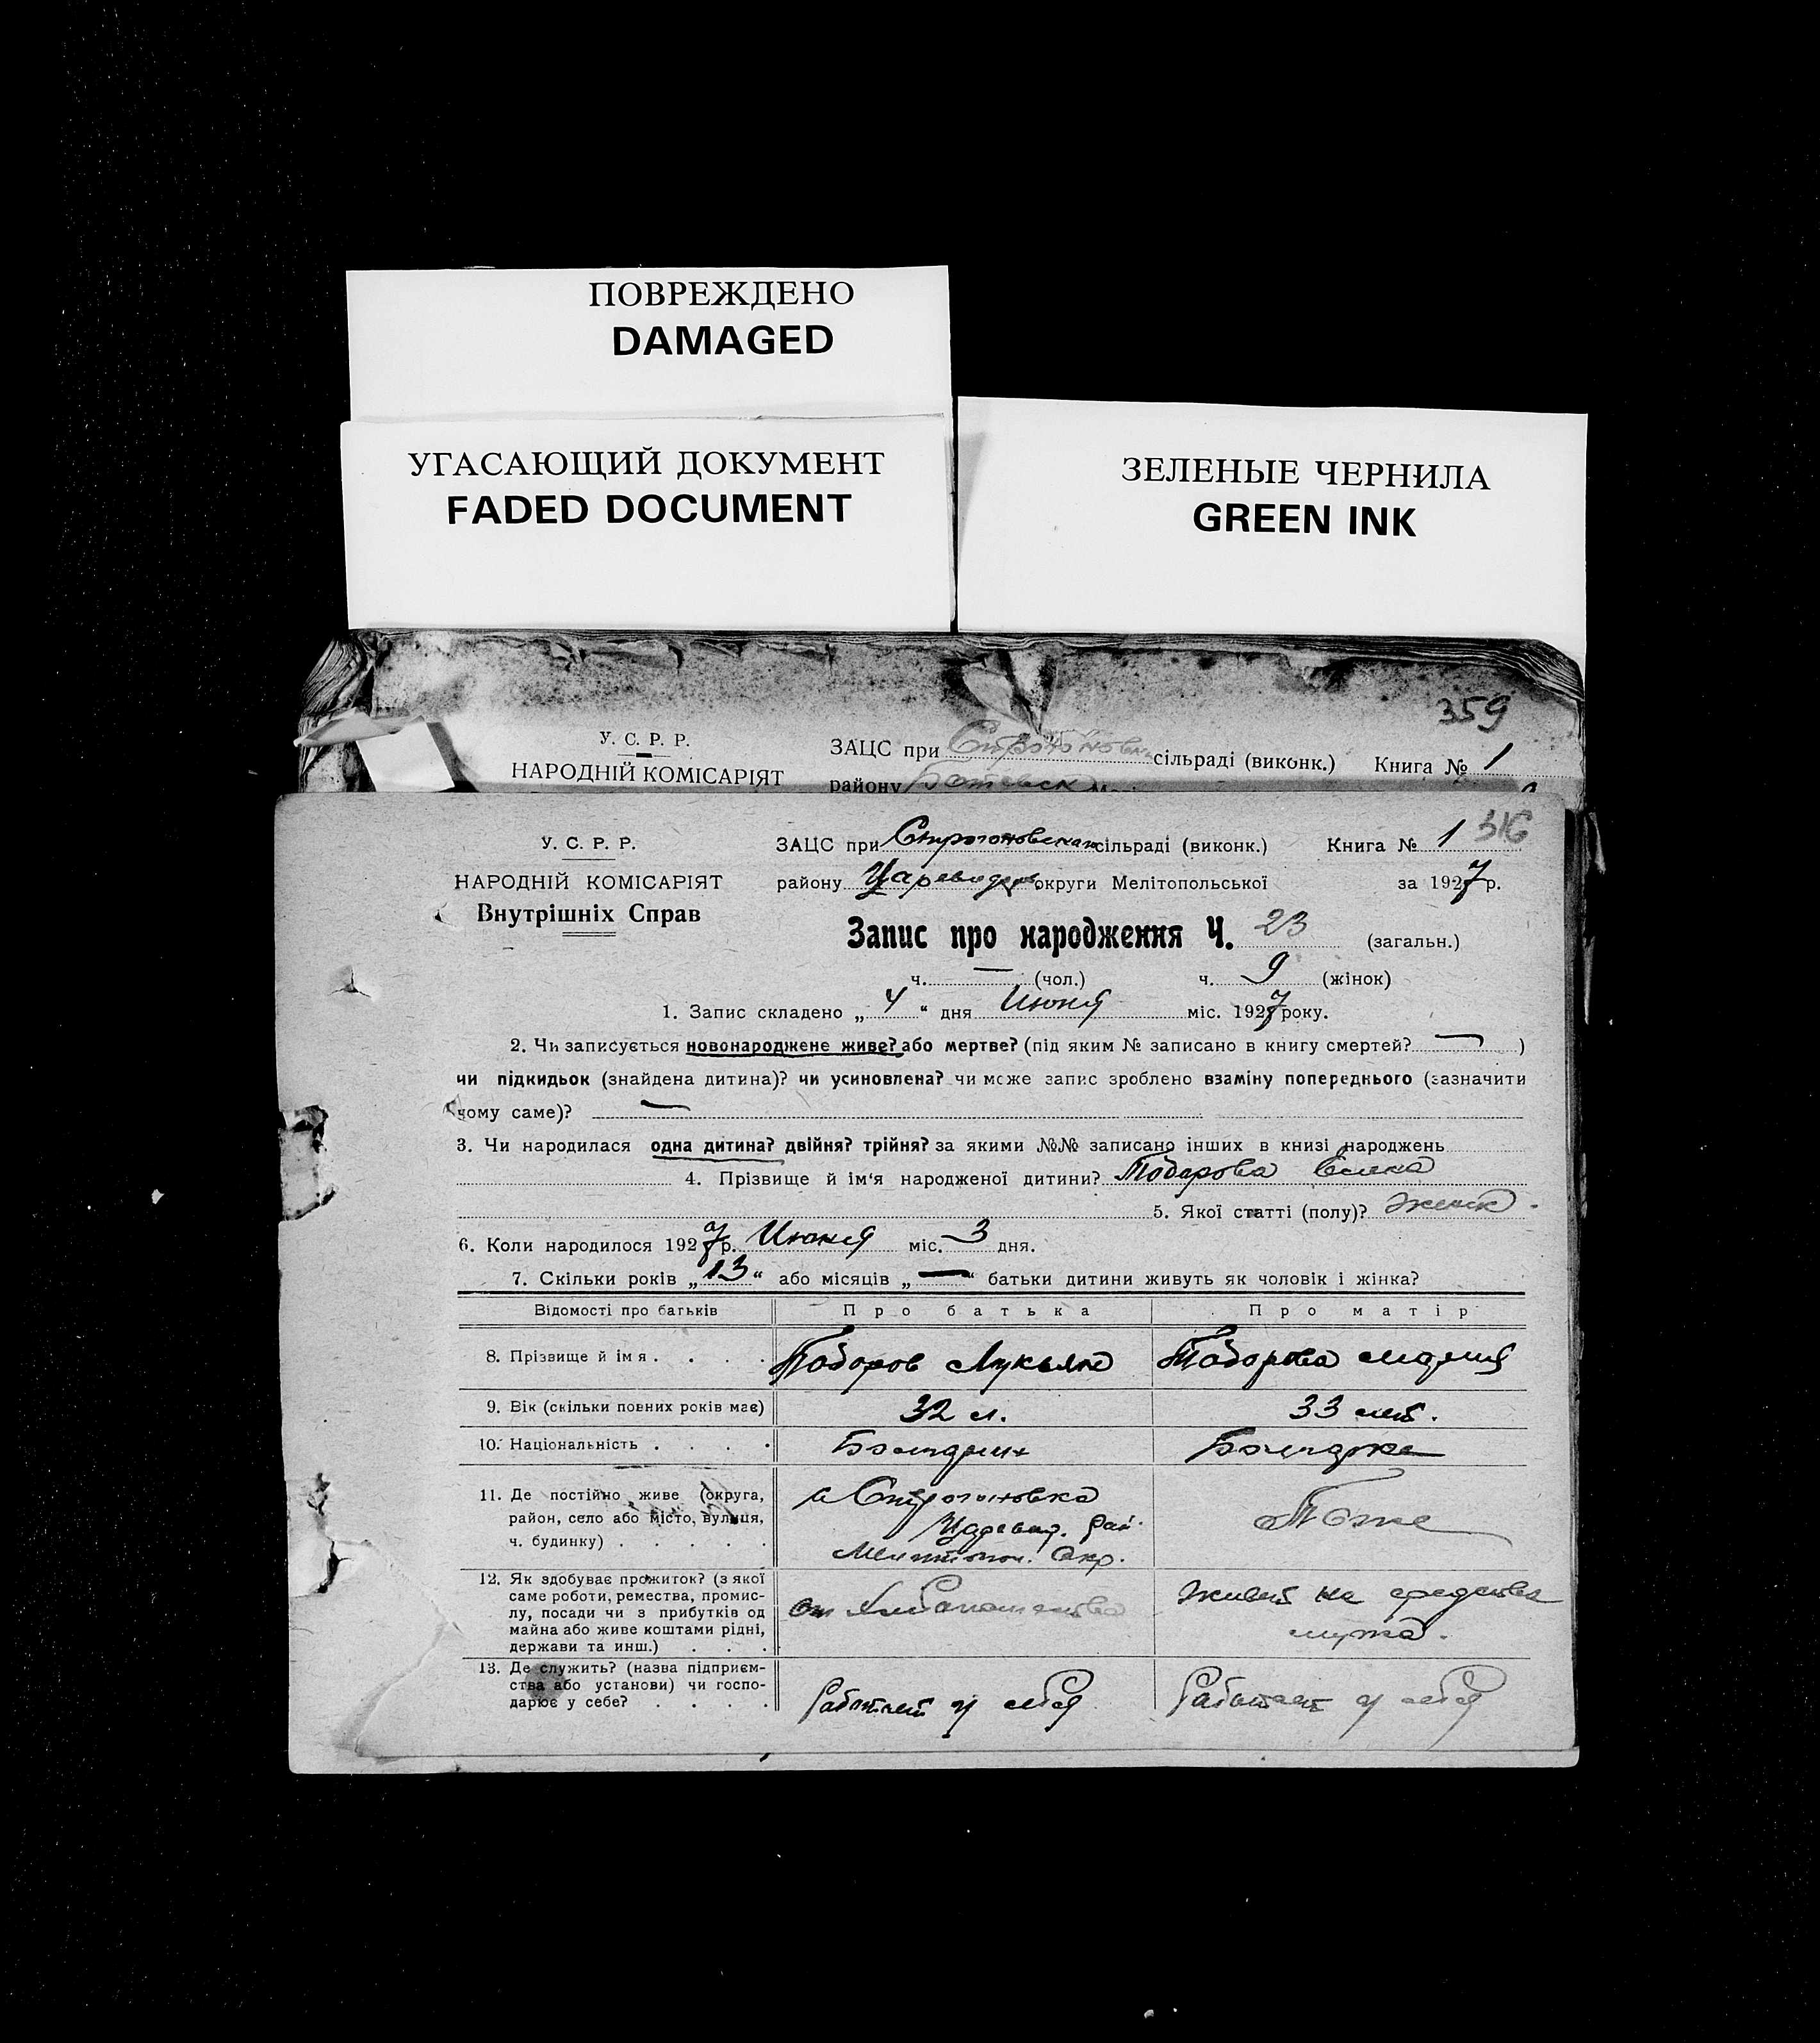 ПОВРЕЖДЕНО
DAMAGED
УГАСАЮЩИЙ ДОКУМЕНТ
FADED DOCUMENT
ЗЕЛЕНЫЕ ЧЕРНИЛА
GREEN INK
359
У. С. Р. Р.
ЗАЦС при сільраді (виконк.) Книга № 1
НАРОДНІЙ КОМІСАРІЯТ
району
316
У. С. Р. Р.
ЗАЦС при Строгоновском сільраді (виконк.) Книга № 1
НАРОДНІЙ КОМІСАРІЯТ
району округи Мелітопольської за 1927 р.
Внутрішніх Справ
Запис про народження Ч. 23 (загальн.)
ч. — (чол.) ч. 9 (жінок)
1. Запис складено „ 4 “ дня Июня міс. 1927 року.
2. Чи записується новонароджене живе? або мертве? (під яким № записано в книгу смертей? — )
чи підкидьок (знайдена дитина)? чи усиновлена? чи може запис зроблено взаміну попереднього (зазначити
чому саме)? —
3. Чи народилася одна дитина? двійня? трійня? за якими №№ записано інших в книзі народжень
4. Прізвище й ім'я народженої дитини? Тодорова
5. Якої статті (полу)? женск.
6. Коли народилося 1927 р. Июня міс. 3 дня.
7. Скільки років „ 13 “ або місяців „ — “ батьки дитини живуть як чоловік і жінка?
Відомості про батьків Про батька Про матір
8. Прізвище й імя . . . . Тодоров Лукьян Тодорова Мария
9. Вік (скільки повних років має) 32 л. 33 лет.
10. Національність . . . . Болгарин Болгарка
11. Де постійно живе (округа,
район, село або місто, вулиця,
ч. будинку) . . . . .
с Строгоновка
Царевод. рай.
Мелитопол. Окр.
Тоже
12. Як здобуває прожиток? (з якої
саме роботи, ремества, промис-
лу, посади чи з прибутків од
майна або живе коштами рідні,
держави та инш.) . . .
от хлебопашества
Живет на средства
мужа.
13. Де служить? (назва підприєм-
ства або установи) чи госпо-
дарює у себе? . . . .
Работает у себя
Работает у себя